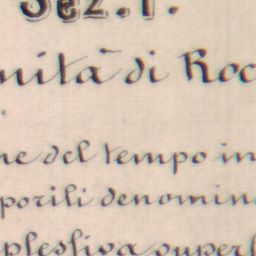 Sez. I.
nità di Roc
ne del tempo in
porili denomin
plessiva superf